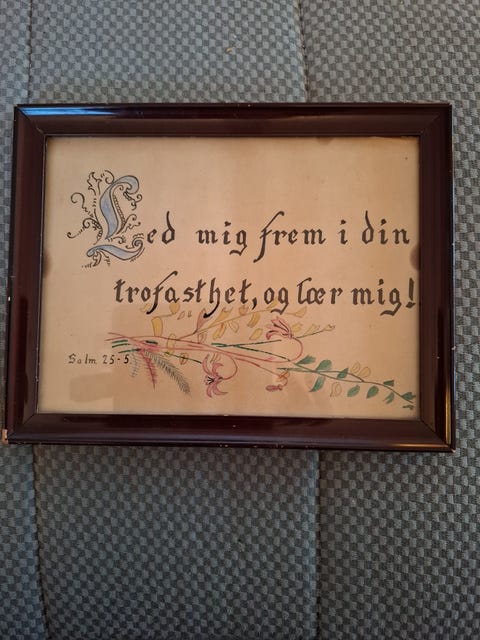 Led mig frem i din
trofasthet, og lær mig!
Salm 25-5